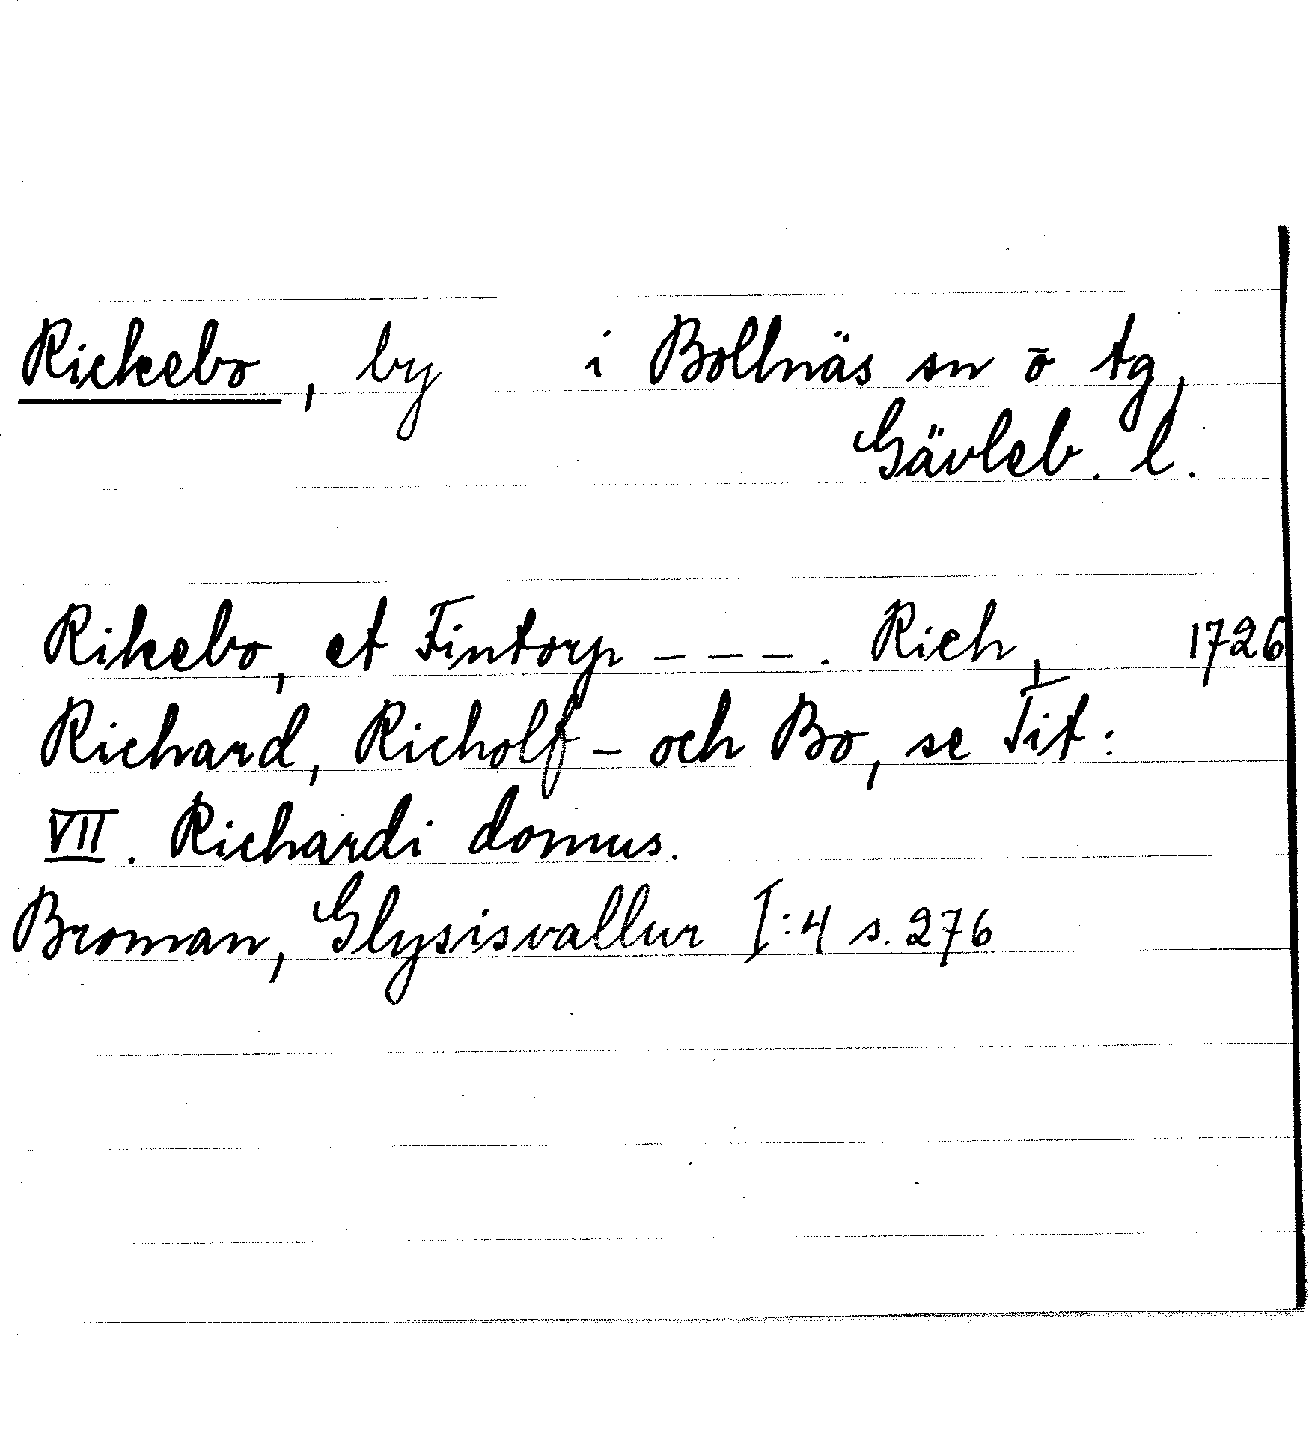 Rickebo, by i Bollnäs sn o tg,
Gävleb. l.
Rikebo, et Fintorp - - - . Rich, 1726
Richard, Richolf - och Bo, se Tit:
VII. Richardi domus.
Broman, Glysisvallur I:4 s. 276